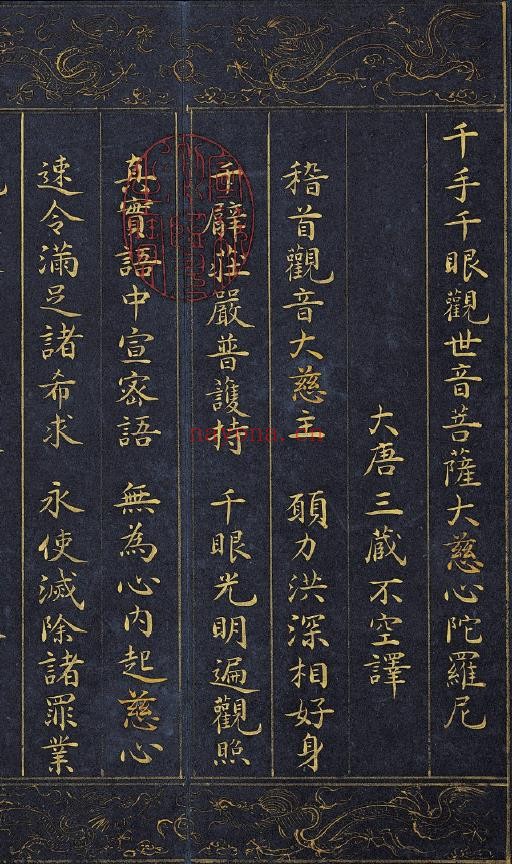 千手千眼觀世音菩薩大慈心陀羅尼
大唐三藏不空譯
稽首觀音大慈主 願力洪深相好身
千臂莊嚴普護持 千眼光明遍觀照
真實語中宣密語 無為心內起慈心
速令滿足諸希求 永使滅除諸罪業